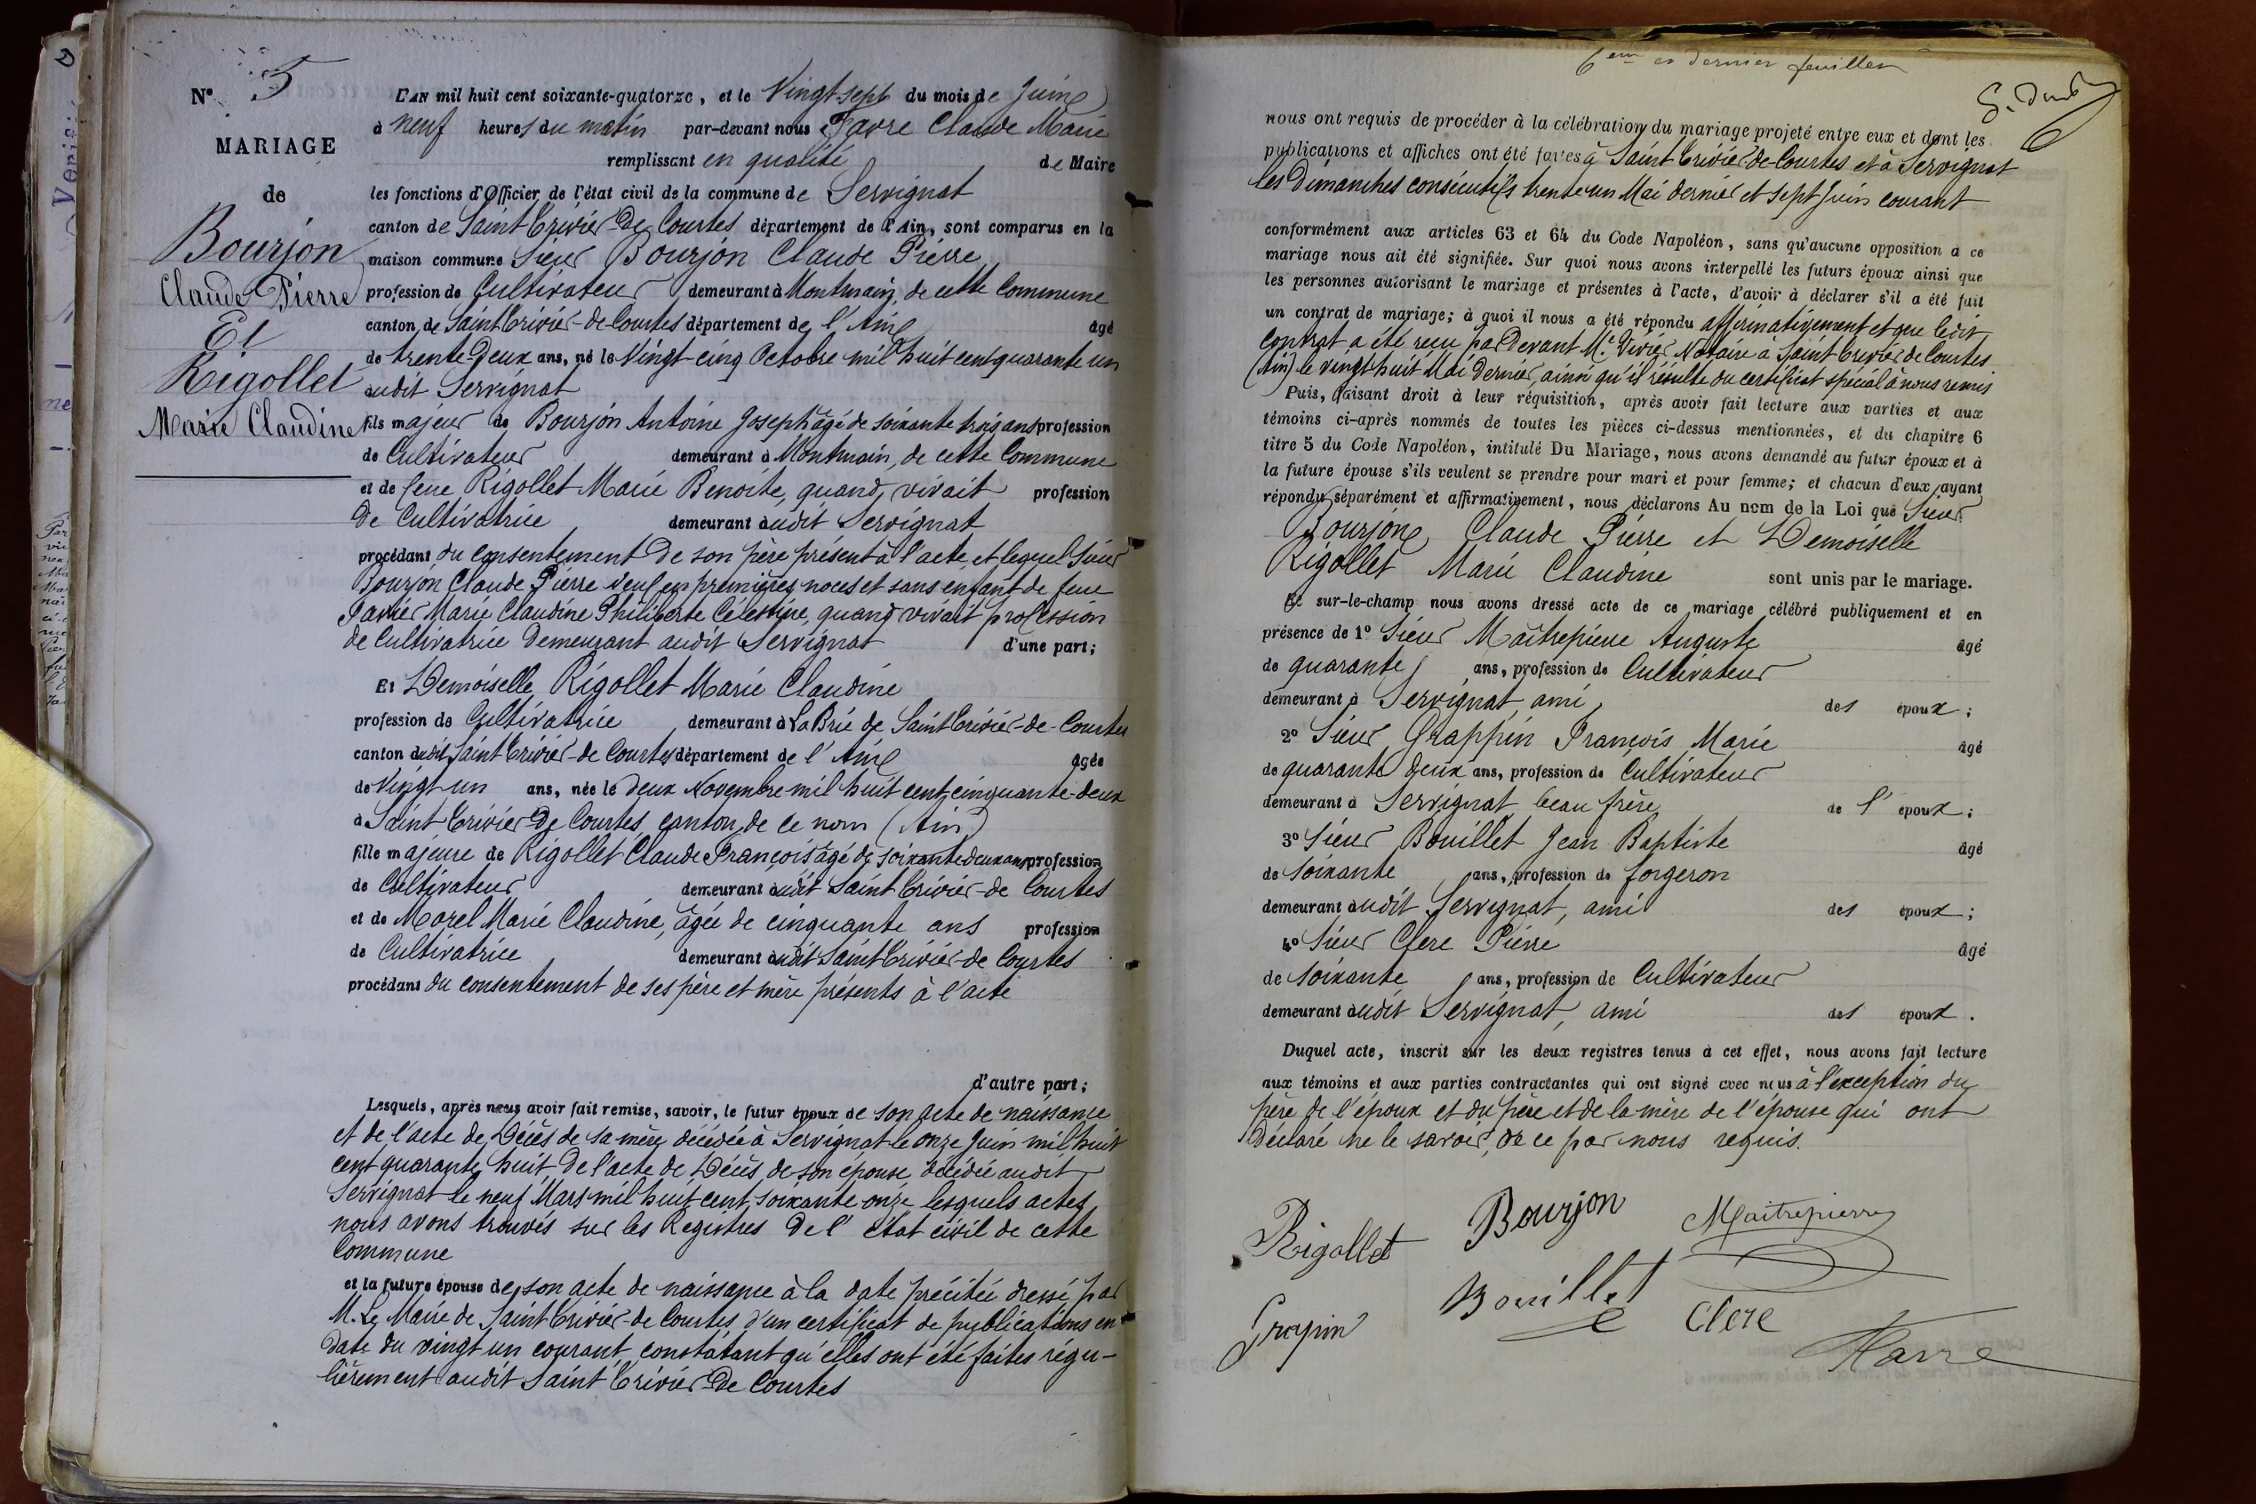 N° 5
MARIAGE
de
Bourjon
Claude Pierre
Et
Rigollet
Marie Claudine
L'AN mil huit cent soixante-quatorze, et le Vingt-sept du mois de Juin
à neuf heures du matin par-devant nous Favre Claude Marie
remplissant en qualité de Maire
les fonctions d'Officier de l'état civil de la commune de Servignat
canton de Saint Trivier-de Courtes, département de l'Ain, sont comparus en la
maison commune Sieur Bourjon Claude Pierre
profession de Cultivateur demeurant à Montmain, de cette Commune
canton de Saint Trivier-de Courtes département de l'Ain âgé
de trente-deux ans, né le Vingt-cinq Octobre mil huit cent quarante un
audit Servignat
fils majeur de Bourjon Antoine Joseph âgé de soixante trois ans profession
de Cultivateur demeurant à Montmain, de cette Commune
et de feue Rigollet Marie Benoite, quand vivait profession
de Cultivatrice demeurant audit Servignat
procédant du consentement de son père présent à l'acte, et lequel Sieur
Bourjon Claude Pierre veuf en premières noces et sans enfant de feue
Marie Claudine Philiberte Célestine, quand vivait profession
de Cultivatrice demeurant audit Servignat d'une part;
Et Demoiselle Rigollet Marie Claudine
profession de Cultivatrice demeurant à La Brie de Saint Trivier-de-Courtes
canton dudit Saint Trivier-de Courtes département de l'Ain âgée
de Vingt-un ans, née le deux Novembre mil huit cent cinquante-deux
à Saint Trivier-de Courtes, canton de ce nom (Ain)
fille majeure de Rigollet Claude François âgé de soixante deux ans profession
de Cultivateur demeurant audit Saint Trivier-de Courtes
et de Morel Marie Claudine, âgée de cinquante ans profession
de Cultivatrice demeurant audit Saint Trivier-de Courtes
procédant du consentement de ses père et mère présents à l'acte
d'autre part;
Lesquels, après nous avoir fait remise, savoir, le futur époux de son acte de naissance
et de l'acte de Décès de sa mère, décédée à Servignat le onze Juin mil huit
cent quarante huit, De l'acte de Décès de son épouse, décédée audit
Servignat le neuf Mars mil huit cent soixante onze, lesquels actes
nous avons trouvés sur les Registres De l'état civil de cette
Commune
et la future épouse de son acte de naissance à la date précitée dressé par
M. Le Maire de Saint Trivier-de Courtes, d'un certificat de publications en
Date du vingt un courant, constatant qu'elles ont été faites régu-
lièrement audit Saint Trivier-de Courtes
6eme et dernier feuillet
nous ont requis de procéder à la célébration du mariage projeté entre eux et dont les
publications et affiches ont été faites à Saint Trivier-de-Courtes et à Servignat
les Dimanches consécutifs trente un Mai dernier et sept Juin courant
conformément aux articles 63 et 64 du Code Napoléon, sans qu'aucune opposition a ce
mariage nous ait été signifiée. Sur quoi nous avons interpellé les futurs époux ainsi que
les personnes autorisant le mariage et présentes à l'acte, d'avoir à déclarer s'il a été fait
un contrat de mariage; à quoi il nous a été répondu affirmativement et que ledit
Contrat a été reçu par Devant Me. Vivier Notaire à Saint Trivier de Courtes
(Ain) le vingt-huit Mai Dernier, ainsi qu'il résulte du certificat spécial à nous remis
Puis, faisant droit à leur réquisition, après avoir fait lecture aux parties et aux
témoins ci-après nommés de toutes les pièces ci-dessus mentionnées, et du chapitre 6
titre 5 du Code Napoléon, intitulé Du Mariage, nous avons demandé au futur époux et à
la future épouse s'ils veulent se prendre pour mari et pour femme; et chacun d'eux ayant
répondu séparément et affirmativement, nous déclarons Au nom de la Loi que Sieur
Bourjon Claude Pierre et Demoiselle
Rigollet Marie Claudine sont unis par le mariage.
Et sur-le-champ nous avons dressé acte de ce mariage célébré publiquement et en
présence de 1° Sieur Maîtrepierre Auguste âgé
de quarante ans, profession de Cultivateur
demeurant à Servignat, ami des époux;
2° Sieur Grappin François Marie âgé
de quarante deux ans, profession de Cultivateur
demeurant à Servignat beau frère de l'époux;
3° Sieur Bouillet Jean Baptiste âgé
de soixante ans, profession de forgeron
demeurant audit Servignat, ami des époux;
4° Sieur Clere Pierre âgé
de soixante ans, profession de Cultivateur
demeurant audit Servignat, ami des époux.
Duquel acte, inscrit sur les deux registres tenus à cet effet, nous avons fait lecture
aux témoins et aux parties contractantes qui ont signé avec nous à l'exception du
père de l'époux et du père et de la mère de l'épouse qui ont
Déclaré ne le savoir, de ce par nous requis.
Rigollet Bourjon Maitrepierre
Bouillet Clere
Grapin Favre